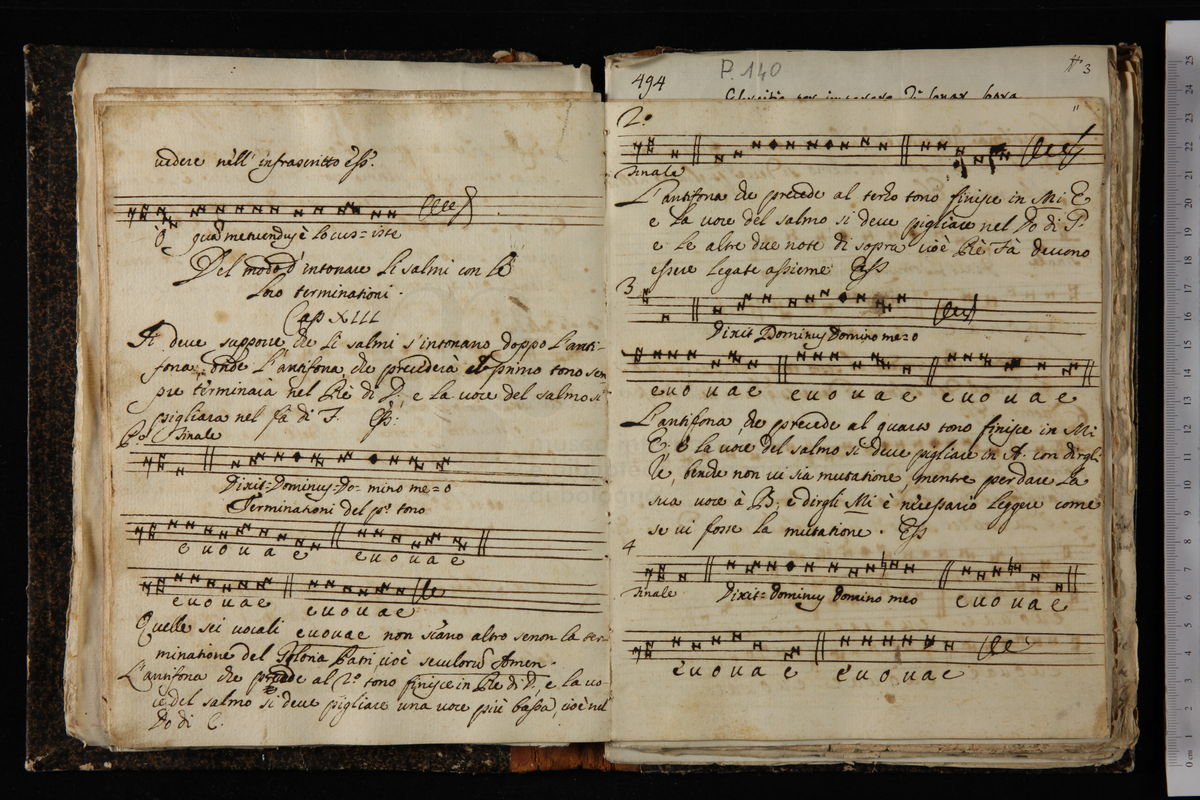 vedere nell' infrascritto Ess.º
O quã metuendus è locus = iste
Del modo d'intonare li salmi con le
loro terminationi.
Cap XIII
Si deve suppore che li salmi s'intonano doppo l'anti-
fona, onde l'antifona che precederà il primo tono sem
pre terminarà nel Rè di D: e la voce del salmo si
pigliara nel fà di F. Ess:
P.º finale
Dixit = Dominus = Do = mino me = o
Terminationi del p.º tono
e u o u a e e u o u a e
e u o u a e e u o u a e
Quelle sei vocali euouae non siano altro senon la ter-
minatione del Gloria Patri, cioè seculorũ Amen.
L'antifona che precede al 2.º tono finisce in Rè di D, e la vo-
ce del salmo si deve pigliare una voce più bassa, cioè nel
Do di C.
494 P. 140 # 3
2.º
finale
L'antifona che precede al terzo tono finisce in Mi E
e la voce del salmo si deve pigliare nel Do di
e le altre due note di sopra cioè Rè Fà devono
essere legate assieme Ess
3
Dixit Dominus Domino me = o
e u o u a e e u o u a e e u o u a e
L'antifona, che precede al quarto tono finisce in Mi
E: e la voce del salmo si deve pigliare in A. con dirgli
Rè, benche non vi sia mutatione, mentre per dare la
sua voce à B: e dirgli Mi è necessario leggere come
se vi fosse la mutatione. Ess
4
finale Dixit = Dominus Domino meo e u o u a e
e u o u a e e u o u a e